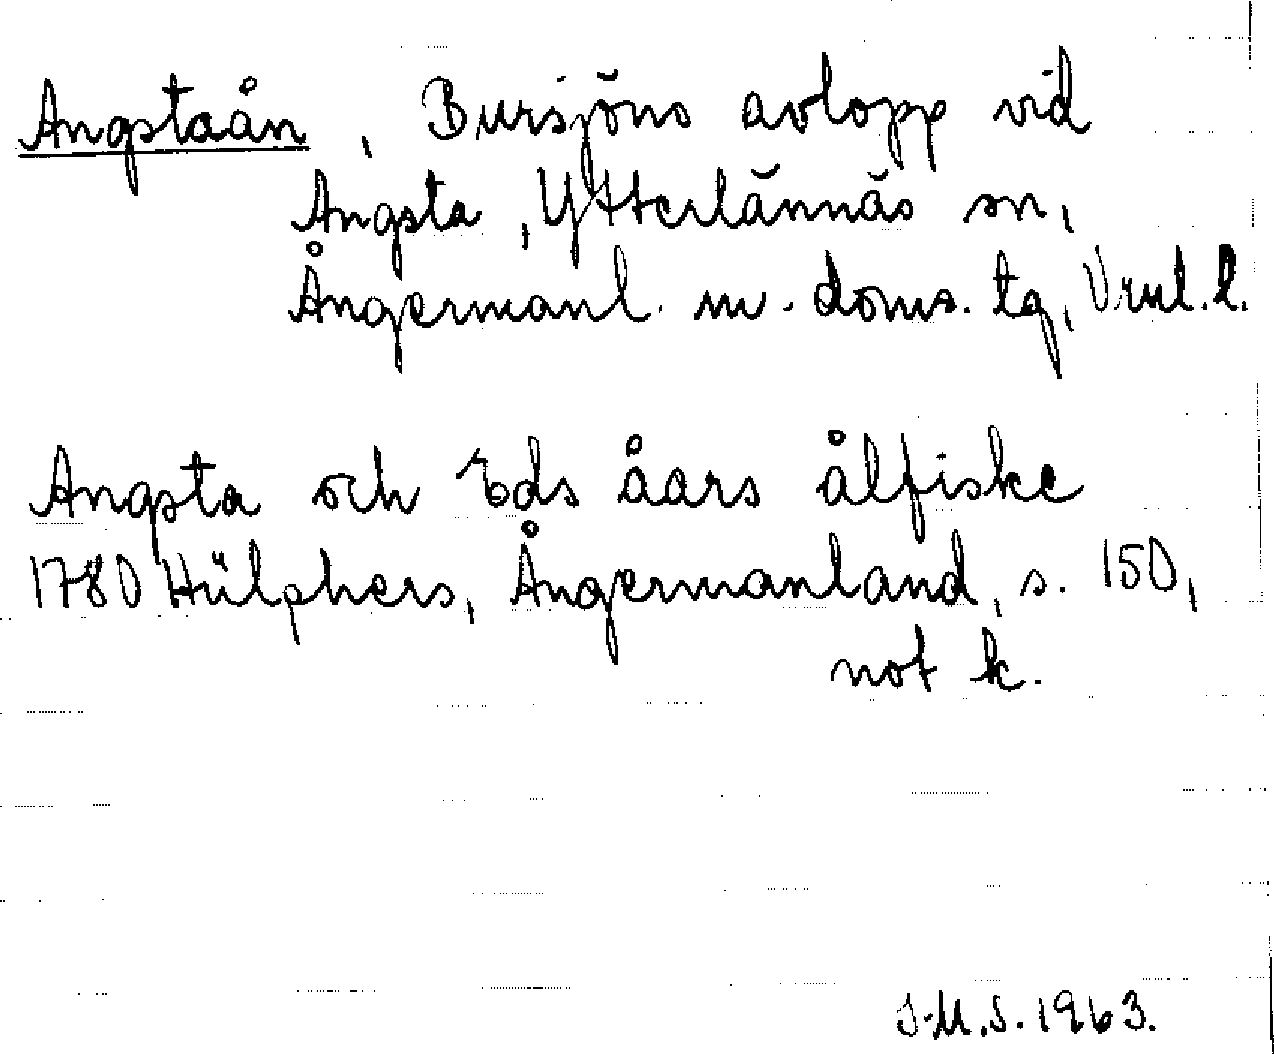 Angstaån, Bursjöns avlopp vid
Angsta, Ytterlännäs sn,
Ångermanl. m. doms. tg, Vnl. l.
Angsta och Eds åars ålfiske
1780 Hülphers, Ångermanland, s. 150,
not k.
J.M.S. 1963.